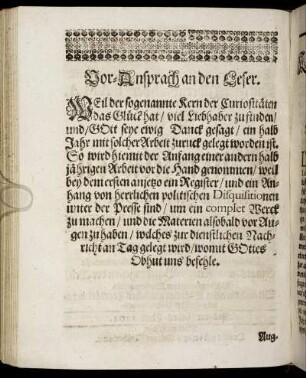 Vor-Ansprach an den Leser.
WEil der sogenannte Kern der Curiositäten
das Glück hat / viel Liebhaber zu finden /
und / GOtt seye ewig Danck gesagt / ein halb
Jahr mit solcher Arbeit zuruck gelegt worden ist.
So wird hiemit der Anfang einer andern halb
jährigen Arbeit vor die Hand genommen / weil
bey dem ersten anjetzo ein Register / und ein An-
hang von herrlichen politischen Disquisitionen
unter der Presse sind / um ein complet Werck
zu machen / und die Materien alsobald vor Au-
gen zu haben / welches zur dienstlichen Nach-
richt an Tag gelegt wird / womit GOttes
Obhut uns befehle.
Aug-